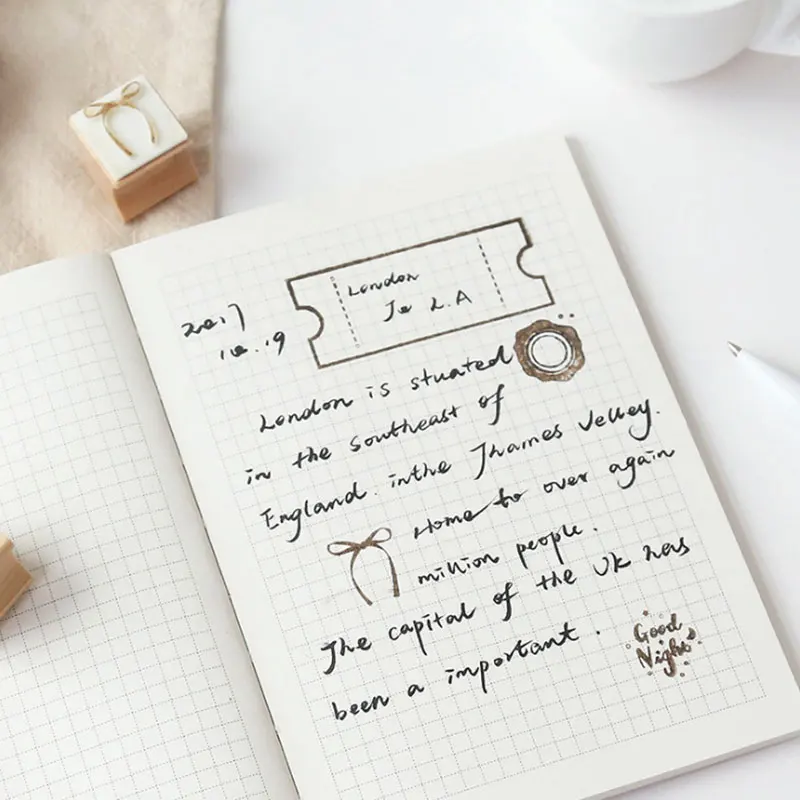 London
Je L.A
2017
10.19
London is stuated
in the southeast of
England. inthe Jhames Velley.
Home to over again
million people.
The capital of the UK has
been a important.
Good
Night